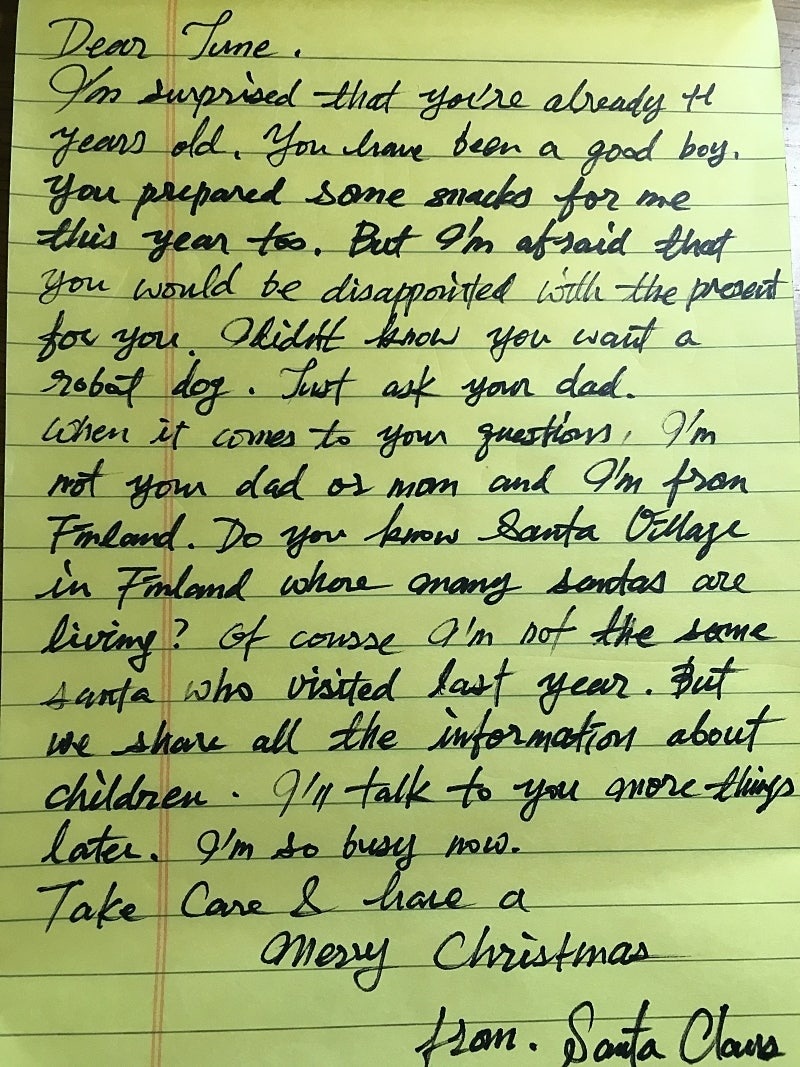 Dear June.
I'm surprised that you're already 11
years old. You have been a good boy.
You prepared some snacks for me
this year too. But I'm afraid that
you would be disappointed with the present
for you. I didn't know you want a
robot dog. Just ask your dad.
When it comes to your questions, I'm
not your dad or mom and I'm from
Finland. Do you know Santa Village
in Finland where many santas are
living? Of course I'm not the same
santa who visited last year. But
we share all the information about
children. I'll talk to you more things
later. I'm so busy now.
Take Care & have a
Merry Christmas
from. Santa Claus